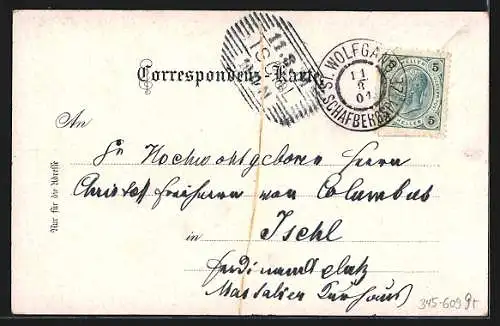 Correspondenz-Karte
ST. WOLFGANG
11
8
01
SCHAFBERGSPITZE
5 HELLER 5
An
Sr Hochwohlgeboren Herrn
Christof Freiherrn von Columbus
in Ischl
Ferdinandsplatz
Nur für die Adresse
345-609